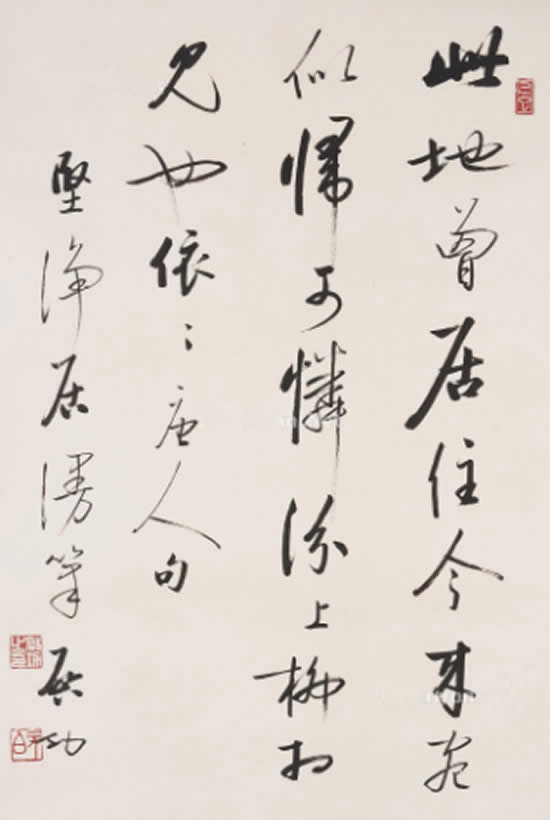 此地曾居住今来宛
似归可怜汾上柳相
见也依:唐人句
坚净居漫笔启功